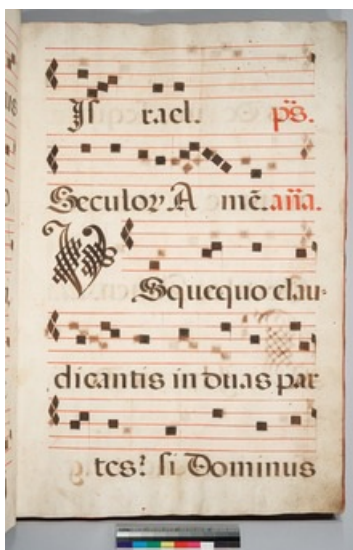 Js rael. ps.
Seculoꝝ A mē. aña.
VSquequo clau-
dicantis in duas par
tes? si Dominus